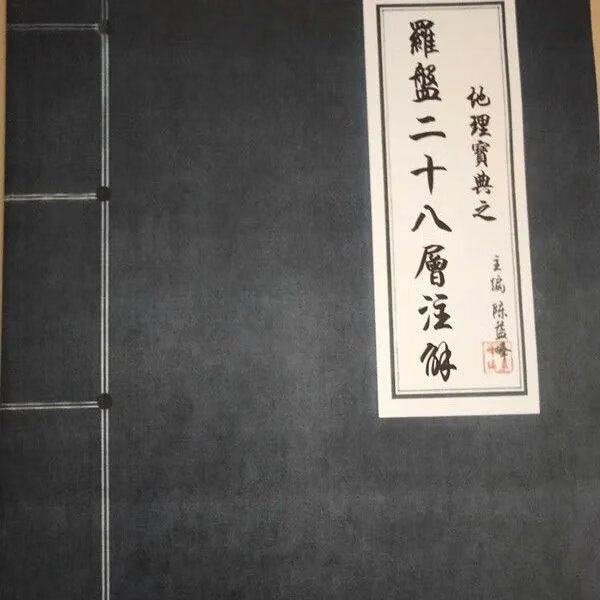 地理寶典之
羅盤二十八層注解
主編 陈益峰